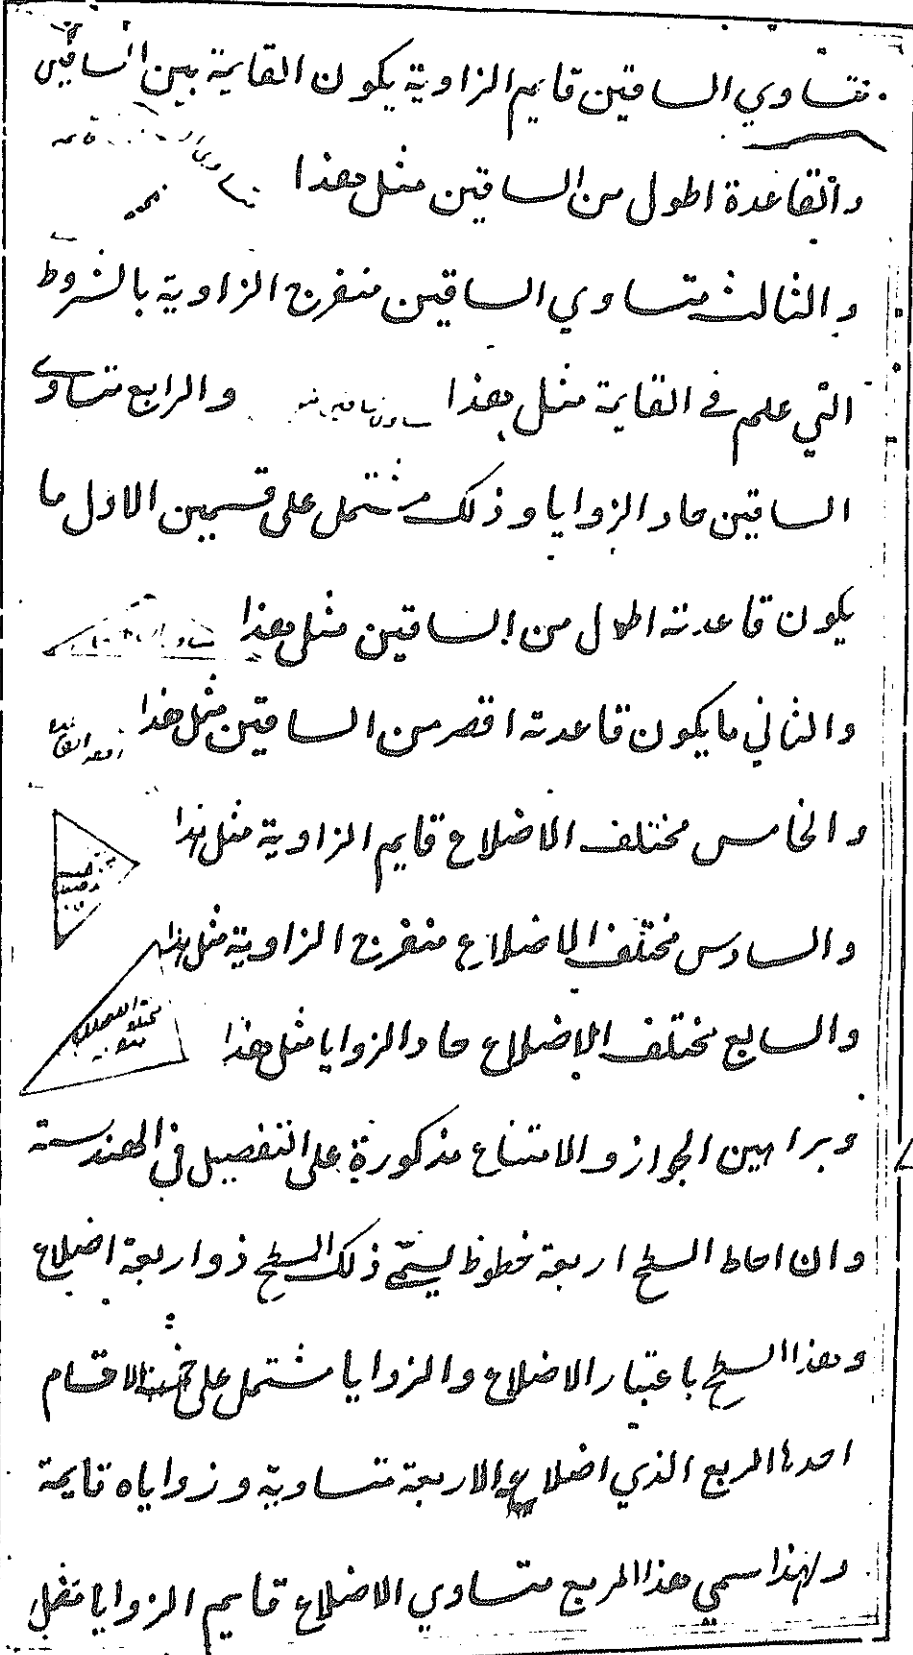 متساوي الساقين قايم الزاوية يكون القايمة بين الساقين
والقاعدة اطول من الساقين مثل هذا
والثالث متساوي الساقين منفرج الزاوية بالشروط
التي علم في القايمة مثل هذا والرابع متساوي
الساقين حاد الزوايا وذلك مشتمل على قسمين الاول ما
يكون قاعدته اطول من الساقين مثل هذا
والثاني ما يكون قاعدته اقصر من الساقين مثل هذا
والخامس مختلف الاضلاع قايم الزاوية مثل هذا
والسادس مختلف الاضلاع منفرج الزاوية مثل هذا
والسابع مختلف الاضلاع حاد الزوايا مثل هذا
وبراهين الجواز والامتناع مذكورة على التفصيل في الهندسة
وان احاط السطح اربعة خطوط يسمى ذلك السطح ذو اربعة اضلاع
وهذا السطح باعتبار الاضلاع والزوايا مشتمل على خمسة الاقسام
احدها المربع الذي اضلاعه الاربعة متساوية وزواياه قايمة
ولهذا سمي هذا المربع متساوي الاضلاع قايم الزوايا مثل